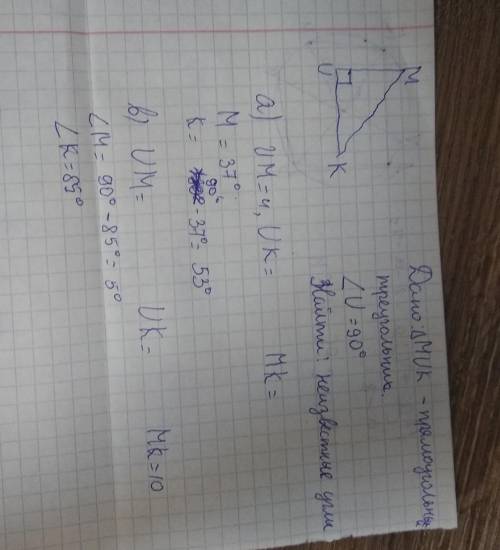 Дано ΔMUK - прямоугольный
треугольник.
∠U = 90°
Найти: неизвестные углы
M
U
K
а) UM = 4, UK =      MK =
M = 37°
K = 90° - 37° = 53°
в) UM =      UK =      MK = 10
∠M = 90° - 85° = 5°
∠K = 85°